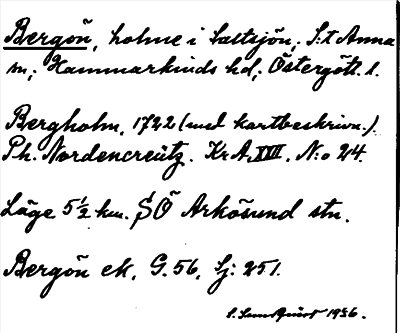 Bergön, holme i Saltsjön; S:t Anna
sn; Hammarkinds hd; Östergötl. l.
Bergholm, 1722 (med kartbeskrivn.)
Ph. Nordencreütz. KrA, XVIII. N:o 24.
Läge 5½ km. SÖ Arkösund stn.
Bergön ek. G. 56, Sj: 251.
S. Landqvist 1936.